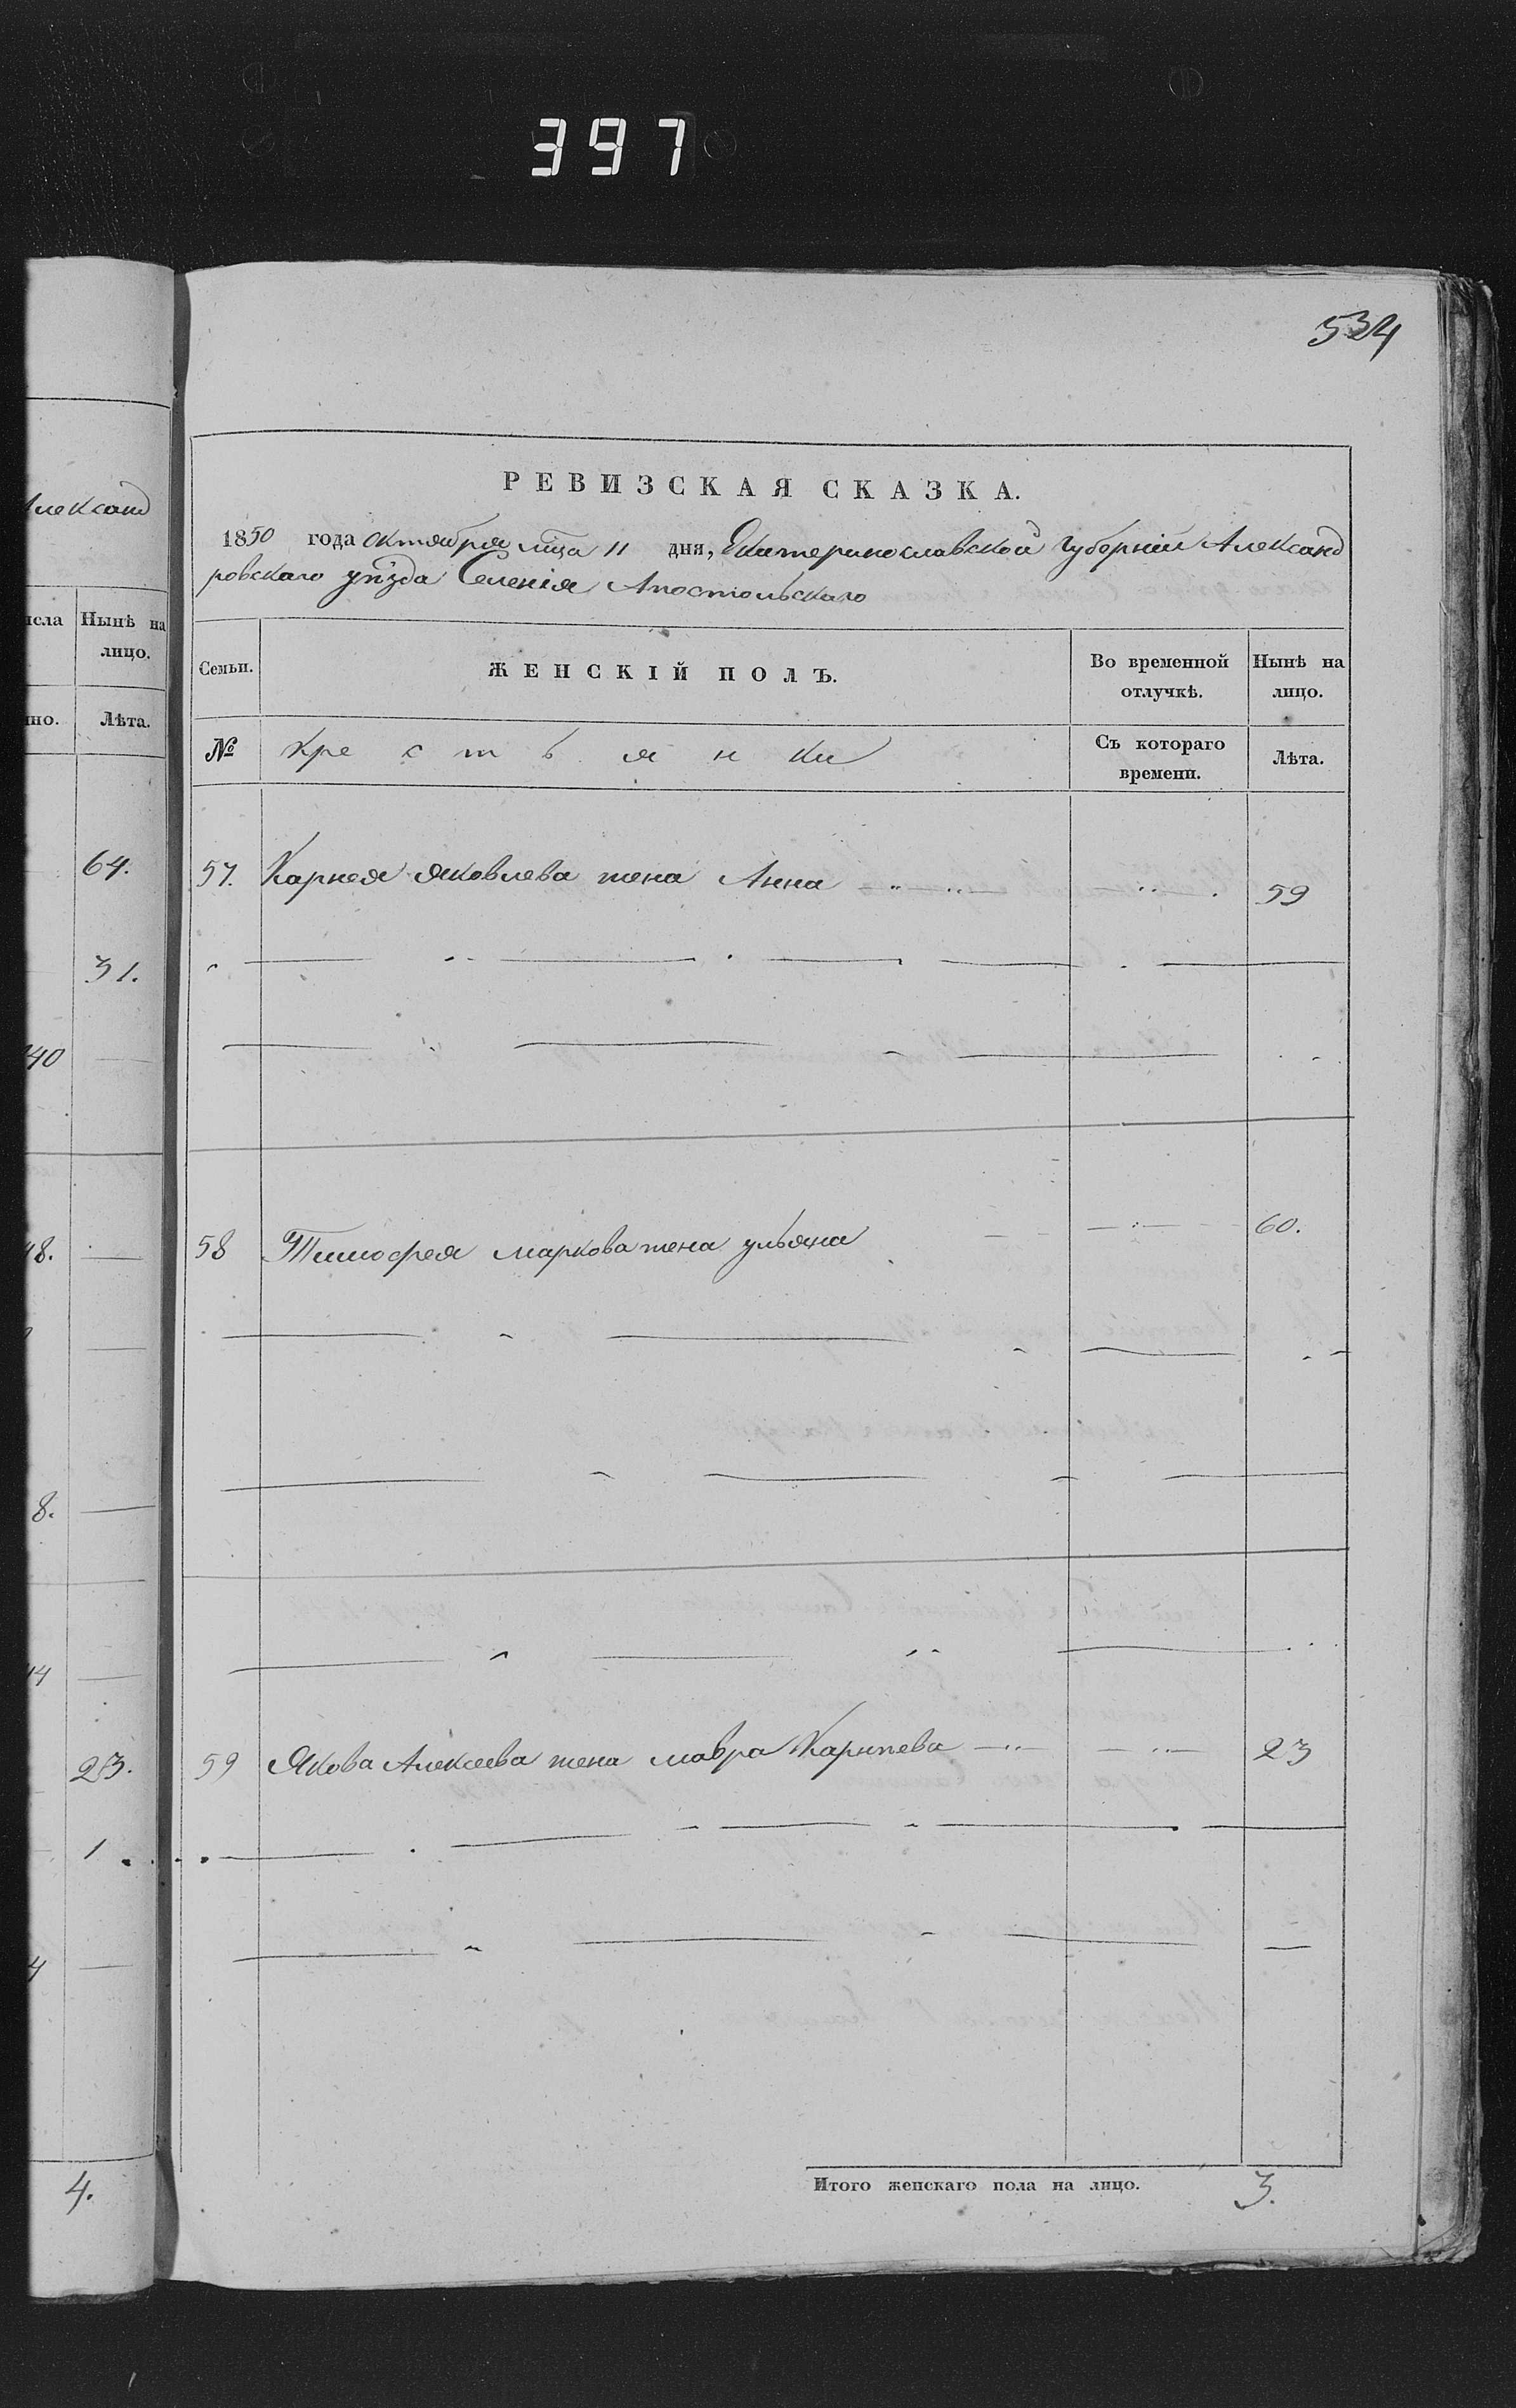 397
534
Александ
РЕВИЗСКАЯ СКАЗКА.
1850 года октября мца 11 дня, Екатеринославской губерніи Александ
ровскаго уѣзда Селенія Апостольскаго
исла Нынѣ на лицо.
но. Лѣта.
Семьи. ЖЕНСКІЙ ПОЛЪ. Во временной отлучкѣ. Нынѣ на лицо.
№ Крестьянки Съ котораго времени. Лѣта.
64.
31.
40
48.
8.
44
23.
1
4
4.
57. Карнея Яковлева жена Анна 59
58 Тимофея Маркова жена Ульяна 60.
59 Якова Алексеева жена Мавра Карнеева 23
Итого женскаго пола на лицо. 3.